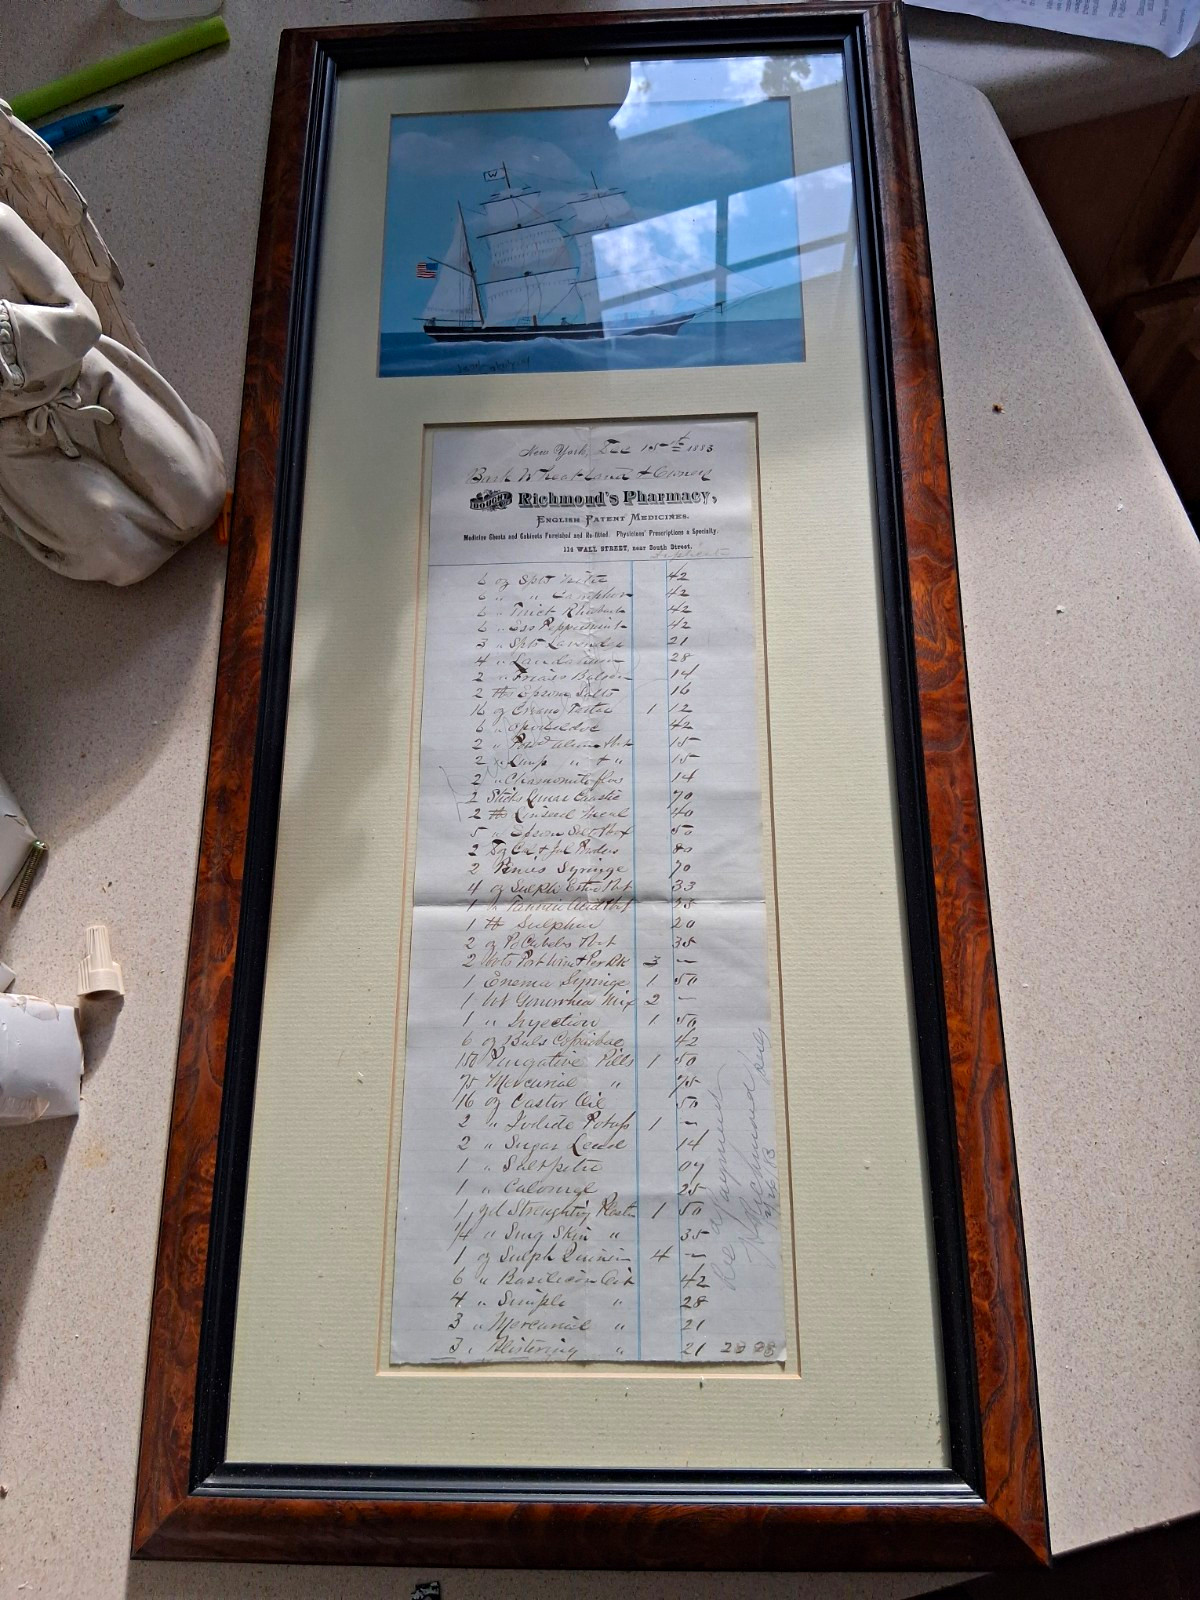 W
New York, Dec 15th 1883
Bark Wheatland & Owners
BOUGHT OF
Richmond's Pharmacy,
ENGLISH PATENT MEDICINES.
Medicine Chests and Cabinets Furnished and Re-fitted. Physicians' Prescriptions a Specialty.
WALL STREET, near South Street.
6 oz Spts Nitre 42
6 " " Camphor 42
6 " Tinct Rhubarb 42
6 " Ess Peppermint 42
3 " Spts Lavender 21
4 " Laudanum 28
2 " Friars Balsam 14
2 lbs Epsom Salts 16
16 oz Cream Tartar 1 12
6 " Opodeldoc 42
2 " Powd Alum 15
2 " Lump " " 15
2 " Chamomile flos 14
2 Sticks Lunar Caustic 70
2 lbs Linseed Meal 40
5 " Epsom Salt 50
2 80
2 Penis Syringe 70
4 oz Sulph Ether 33
1 " Tannic Acid
1 lb Sulphur 20
2 oz Po Cubebs 35
2 Bots Port Wine & Per Bk 3 —
1 Enema Syringe 1 50
1 Bot Gonorrhea Mix 2 —
1 " Injection 1 50
6 oz Bals Copaibae 42
150 Purgative Pills 1 50
75 Mercurial " 75
16 oz Castor Oil 50
2 " Iodide Potass 1 —
2 " Sugar Lead 14
1 " Saltpetre 07
1 " Calomel 25
1 yd Strengthing Plaster 1 50
1/4 " Skin " 35
1 oz Sulph Quinin 4 —
6 " Basilicon Oint 42
4 " Simple " 28
3 " Mercurial " 21
3 " Blistering " 21
Rec payment
Richmond